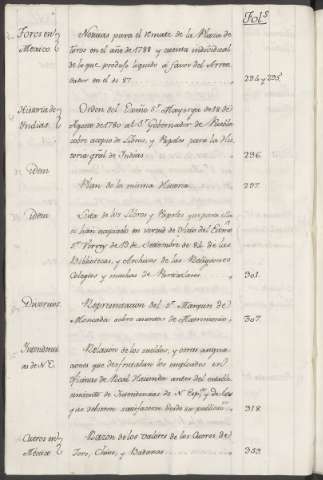 Fol.s
Toros en Mexico
Noticias para el remate de la Plaza de
toros en el año de 1788 y cuenta individual
de lo que produjo liquido á favor del Arren
dador en el de 87
234 y 235
Historia de Indias
Orden del Exmo S.r Mayorga de 18 de
Agosto de 1780 al S.r Gobernador de Puebla
sobre acopio de Libros, y Papeles para la His
toria gral de Indias
236
idem
Plan de la misma Historia
297
idem
Lista de los Libros y Papeles que para ella
se han acopiado en virtud de Orden del Exmo
S.r Virrey de 19 de Setiembre de 82 de las
Bibliotecas, y Archivos de las Religiones
Colegios y muchos de Particulares
301
Divorcios
Representacion del S.r Marques de
Moncada sobre asuntos de Matrimonio
307
Intendencias de N.E.
Relacion de los sueldos, y otras asigna
ciones que disfrutaban los empleados en
oficinas de Real Hacienda antes del estable
cimiento de Intendencias de N. Esp.a y de los
que debieron satisfacerse desde su publicac.n
318
Cueros en Mexico
Razon de los valores de los Cueros de
Toro, Chivo, y Badanas
353